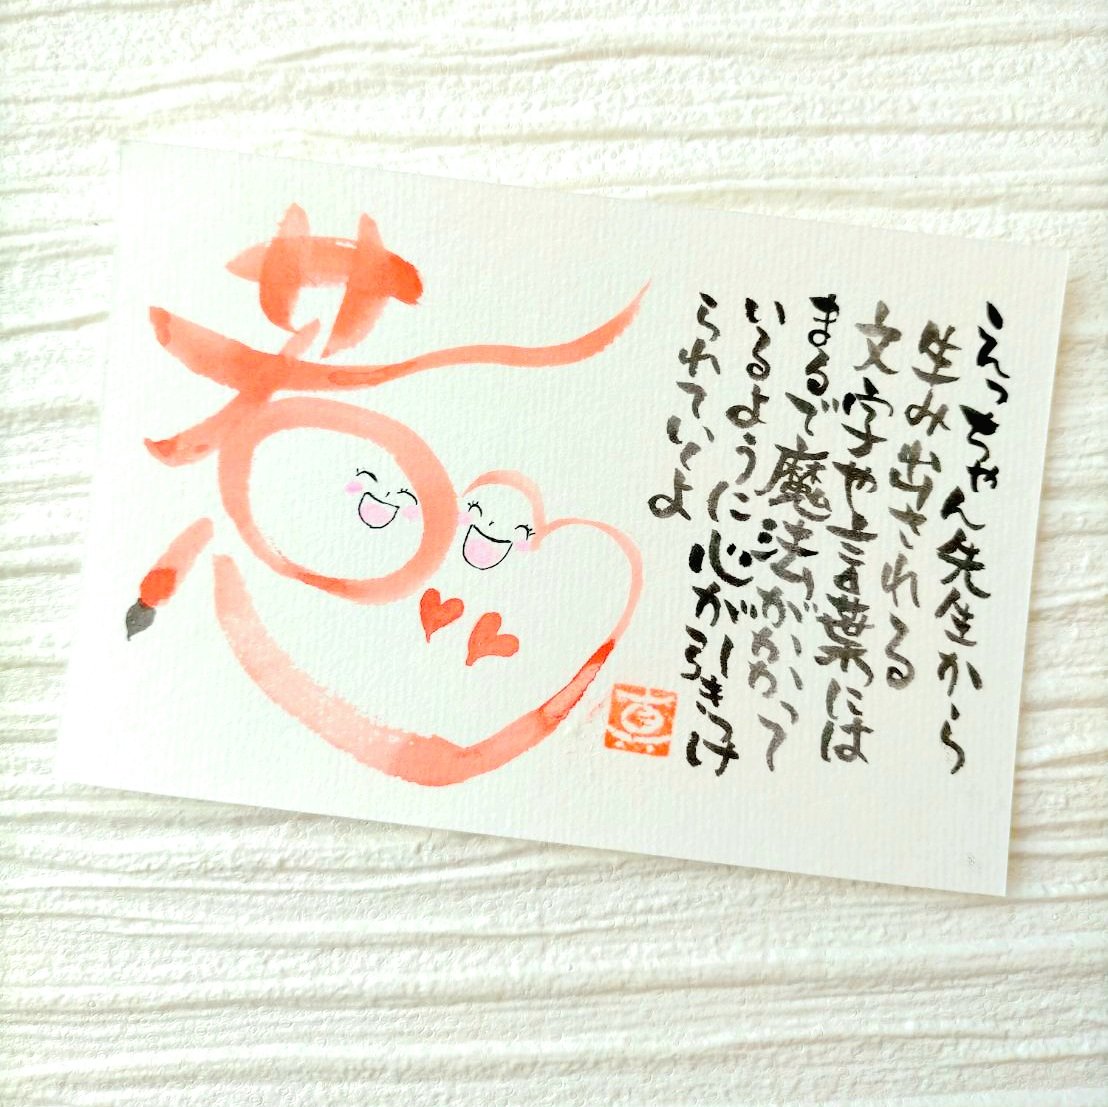 えっちゃん先生から
生み出される
文字や言葉には
まるで魔法がかかって
いるように心が引きつけ
られていくよ